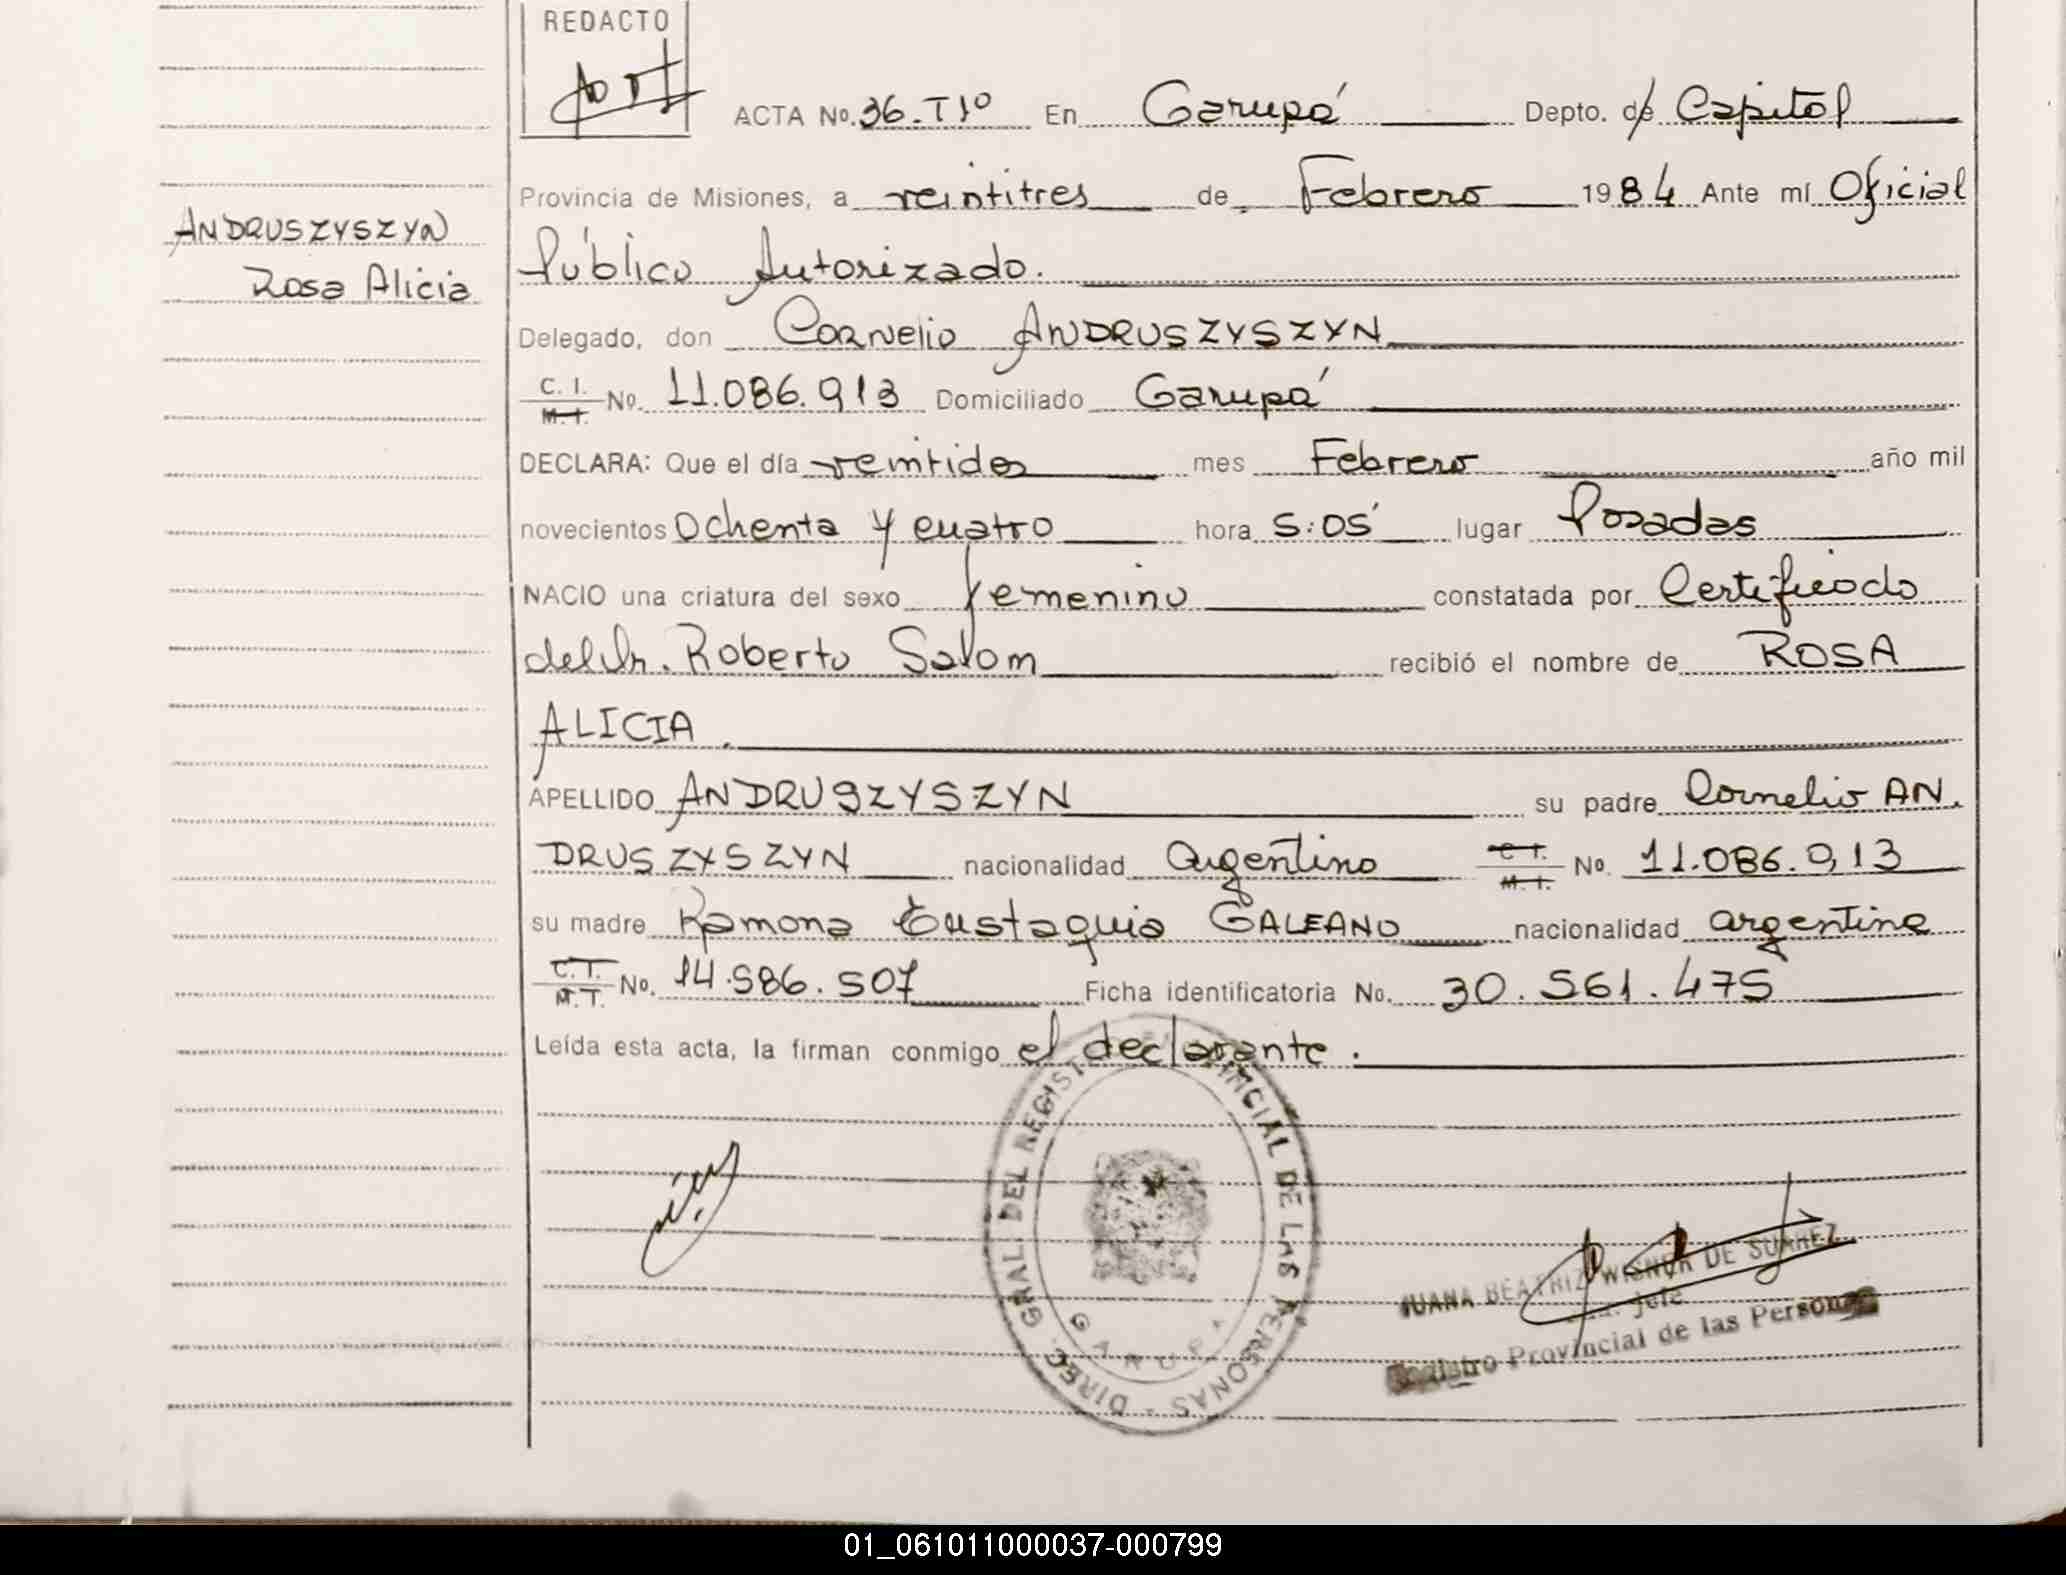 REDACTO
ACTA No. 36. T1º En Garupá Depto. de Capital
Provincia de Misiones, a veintitres de Febrero 1984 Ante mí Oficial
ANDRUSZYSZYN
Rosa Alicia
Público Autorizado.
Delegado, don Cornelio ANDRUSZYSZYN
C. I.
M. I.
No. 11.086.913 Domiciliado Garupá
DECLARA: Que el día veintidos mes Febrero año mil
novecientos Ochenta y cuatro hora 5:05' lugar Posadas
NACIO una criatura del sexo femenino constatada por Certificado
del Dr. Roberto Salom recibió el nombre de ROSA
ALICIA.
APELLIDO ANDRUSZYSZYN su padre Cornelio AN.
DRUSZYSZYN nacionalidad Argentino C. I. M. I. No. 11.086.913
su madre Ramona Eustaquia GALEANO nacionalidad argentina
C. I. M. I. No. 14.586.507 Ficha identificatoria No. 30.561.475
Leída esta acta, la firman conmigo el declarante.
DIREC. GRAL. DEL REGIST PROVINCIAL DE LAS PERSONAS -
GARUPA
JUANA BEATRIZ WISNER DE SUAREZ
Jefe
Registro Provincial de las Personas
01_061011000037-000799